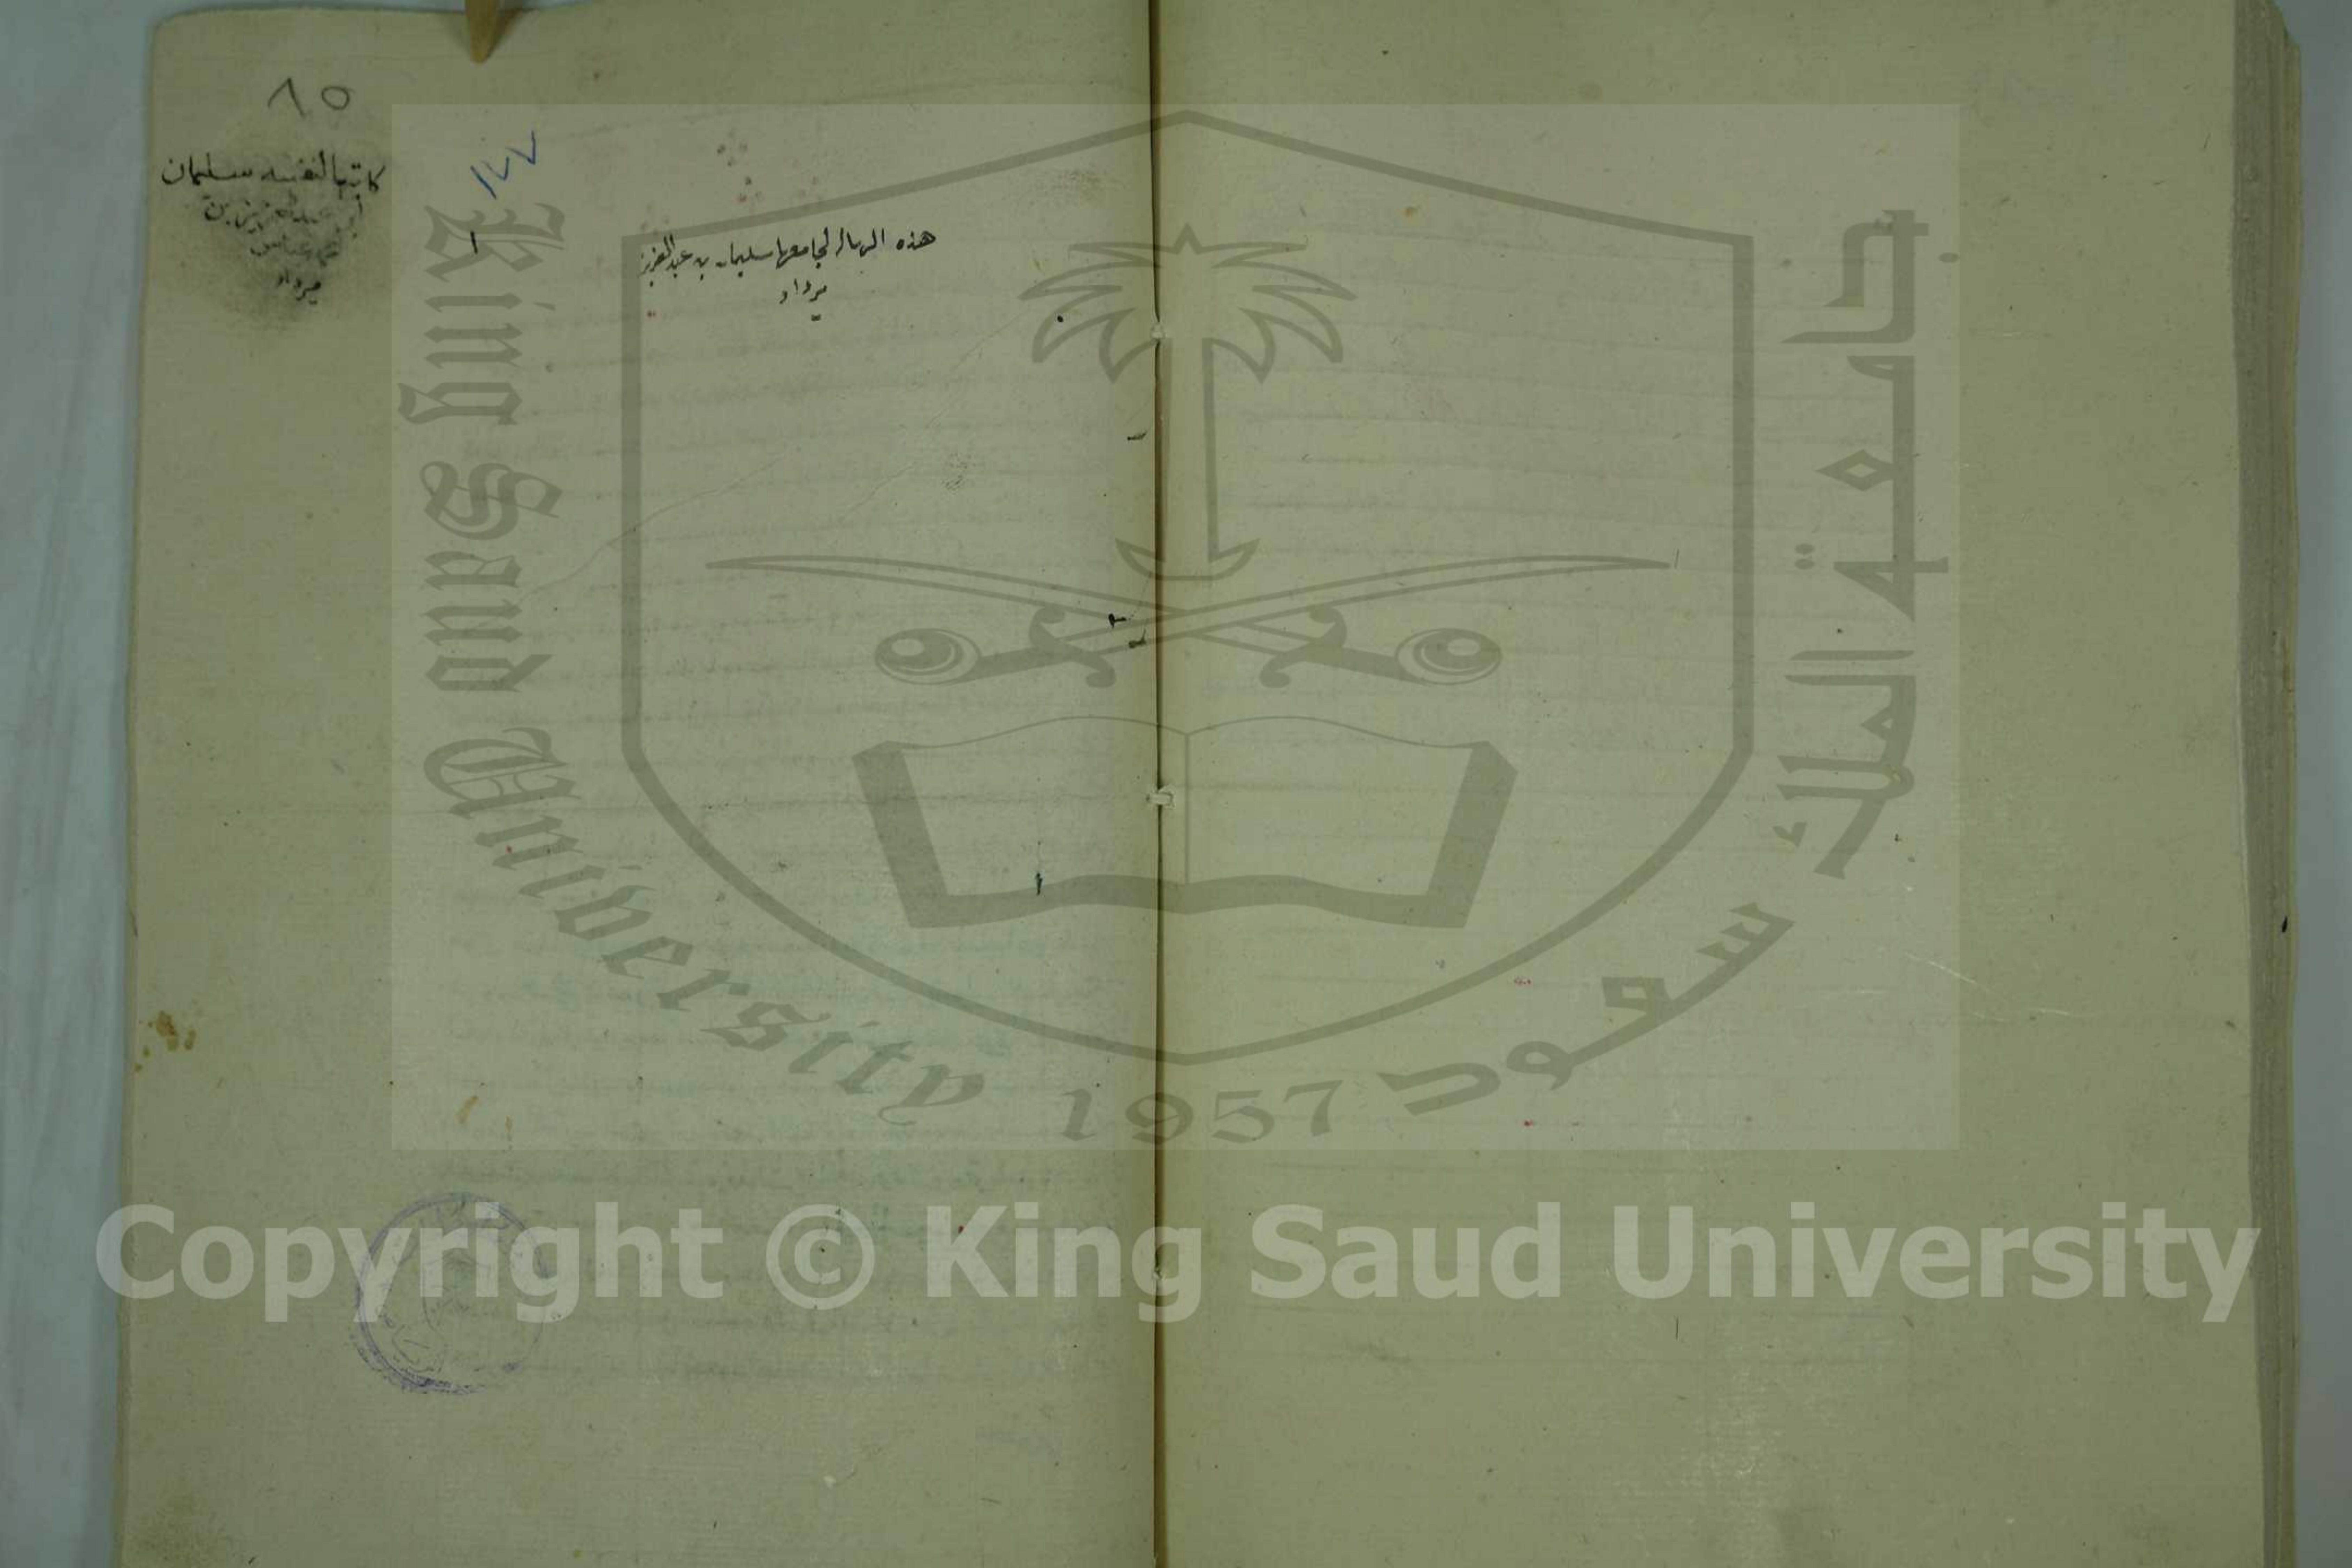 ٨٥
كاتبها لنفسه سليمان
ابن عبد العزيز بن
عباس
مرداد
١٧٧
١
هذه الرساله لجامعها سليمان بن عبد العزيز
مرداد
King Saud University
1957
جامعة الملك سعود
Copyright © King Saud University